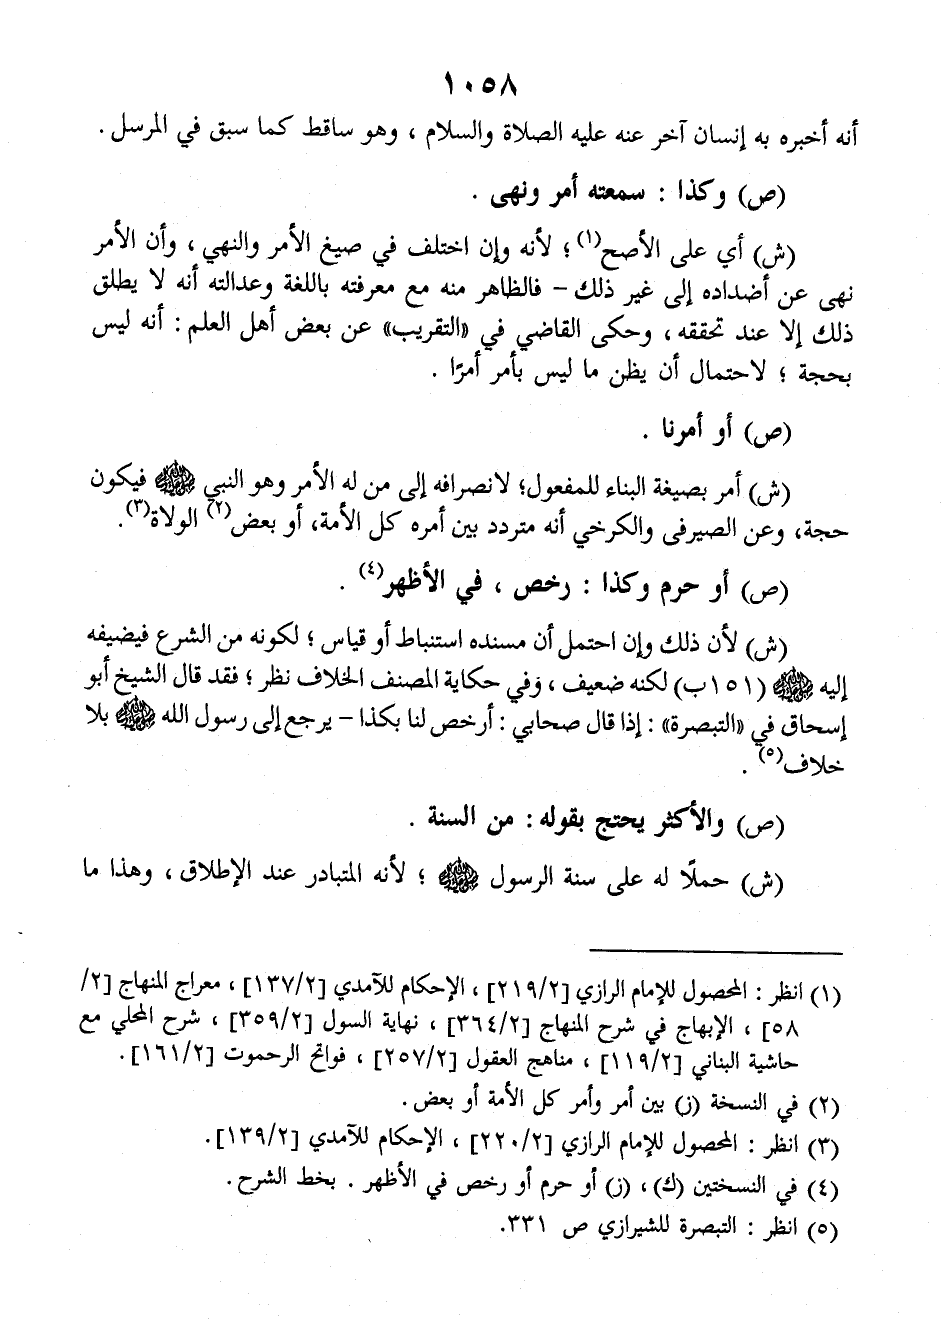 ١٠٥٨
أنه أخبره به إنسان آخر عنه عليه الصلاة والسلام ، وهو ساقط كما سبق في المرسل .
(ص) وكذا : سمعته أمر ونهى .
(ش) أي على الأصح(١) ؛ لأنه وإن اختلف في صيغ الأمر والنهي ، وأن الأمر
نهى عن أضداده إلى غير ذلك – فالظاهر منه مع معرفته باللغة وعدالته أنه لا يطلق
ذلك إلا عند تحققه ، وحكى القاضي في «التقريب» عن بعض أهل العلم : أنه ليس
بحجة ؛ لاحتمال أن يظن ما ليس بأمر أمرًا .
(ص) أو أمرنا .
(ش) أمر بصيغة البناء للمفعول؛ لانصرافه إلى من له الأمر وهو النبي ﷺ فيكون
حجة، وعن الصيرفى والكرخي أنه متردد بين أمره كل الأمة، أو بعض(٢) الولاة(٣).
(ص) أو حرم وكذا : رخص ، في الأظهر(٤) .
(ش) لأن ذلك وإن احتمل أن مسنده استنباط أو قياس ؛ لكونه من الشرع فيضيفه
إليه ﷺ (١٥١ب) لكنه ضعيف ، وفي حكاية المصنف الخلاف نظر ؛ فقد قال الشيخ أبو
إسحاق في «التبصرة» : إذا قال صحابي : أرخص لنا بكذا – يرجع إلى رسول الله ﷺ بلا
خلاف(٥) .
(ص) والأكثر يحتج بقوله : من السنة .
(ش) حملًا له على سنة الرسول ﷺ ؛ لأنه المتبادر عند الإطلاق ، وهذا ما
(١) انظر : المحصول للإمام الرازي [٢١٩/٢] ، الإحكام للآمدي [١٣٧/٢] ، معراج المنهاج [٢/
٥٨] ، الإبهاج في شرح المنهاج [٣٦٤/٢] ، نهاية السول [٣٥٩/٢] ، شرح المحلي مع
حاشية البناني [١١٩/٢] ، مناهج العقول [٢٥٧/٢] ، فواتح الرحموت [١٦١/٢] .
(٢) في النسخة (ز) بين أمر وأمر كل الأمة أو بعض .
(٣) انظر : المحصول للإمام الرازي [٢٢٠/٢] ، الإحكام للآمدي [١٣٩/٢] .
(٤) في النسختين (ك) ، (ز) أو حرم أو رخص في الأظهر . بخط الشرح .
(٥) انظر : التبصرة للشيرازي ص ٣٣١.